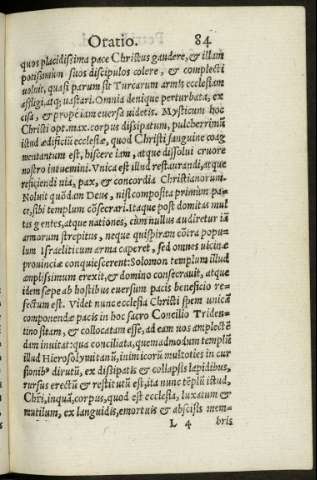 Oratio. 84
quos placidissima pace Christus gaudere, & illam
potissimùm suos discipulos colere, & complecti
uoluit, quasi parum sit Turcarum armis ecclesiam
affligi, atq; uastari. Omnia denique perturbata, ex
cisa, & propè iam euersa uidetis. Mysticum hoc
Christi opt. max. corpus dissipatum, pulcherrimũ
istud ædificiũ ecclesiæ, quod Christi sanguine coag
mentatum est, hiscere iam, atque dissolui cruore
nostro intuemini. Vnica est illud restaurandi, atque
reficiendi uia, pax, & concordia Christianorum.
Noluit quõdam Deus, nisi composita primùm pa=
ce, sibi templum cõsecrari. Itaque post domitas mul
tis gentes, atque nationes, cùm nullus audiretur iã
armorum strepitus, neque quispiam cõtra popu=
lum Israëliticum arma caperet, sed omnes uicinæ
prouinciæ conquiescerent: Solomon templum illud
amplissimum erexit, & domino consecrauit, atque
idem sæpe ab hostibus euersum pacis beneficio re=
fectum est. Videt nunc ecclesia Christi spem unicã
componendæ pacis in hoc sacro Concilio Triden=
tino sitam, & collocatam esse, ad eam uos amplectẽ
dam inuitat: qua conciliata, quemadmodum templũ
illud Hierosolymitanũ, inimicorũ multoties in cur
sionib⁹ dirutũ, ex dissipatis & collapsis lapidibus,
rursus erectũ & restitutũ est, ita nunc tẽplũ istud,
Chri, inquã, corpus, quod est ecclesia, luxatum &
mutilum, ex languidis, emortuis & abscisis mem=
L 4 bris